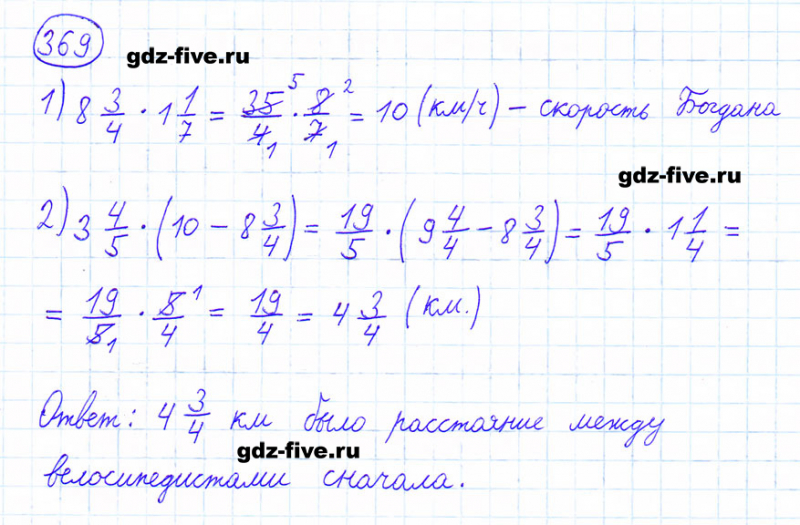 369
gdz-five.ru
1) 8 3/4 · 1 1/7 = 35/4 · 8/7 = 10 (км/ч) – скорость Богдана
gdz-five.ru
2) 3 4/5 · (10 – 8 3/4) = 19/5 · (9 4/4 – 8 3/4) = 19/5 · 1 1/4 =
= 19/5 · 5/4 = 19/4 = 4 3/4 (км.)
Ответ: 4 3/4 км было расстояние между
gdz-five.ru
велосипедистами сначала.